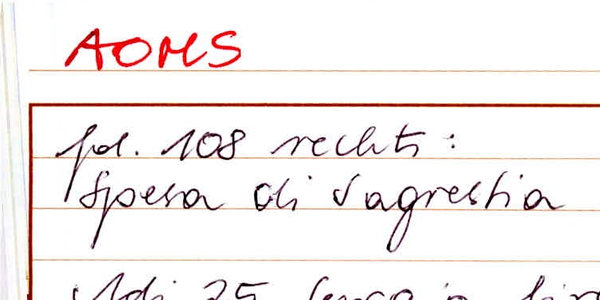 AOMS
fol. 108 rechts:
Spesa di Sagrestia
Adi 25